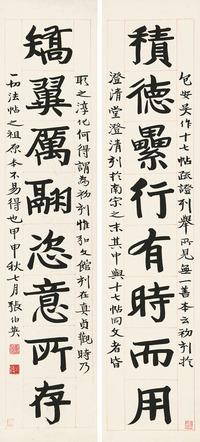 包安吴作十七帖疏證列舉所見無一善本云初刻於
積德纍行有時而用
澄清堂澄清刻於南宋之末其中與十七帖同文者皆
取之淳化何得謂為初刻惟弘文館刻在真貞觀時乃
矯翼厲翮恣意所存
一切法帖之祖原本不易得也甲申秋七月張伯英